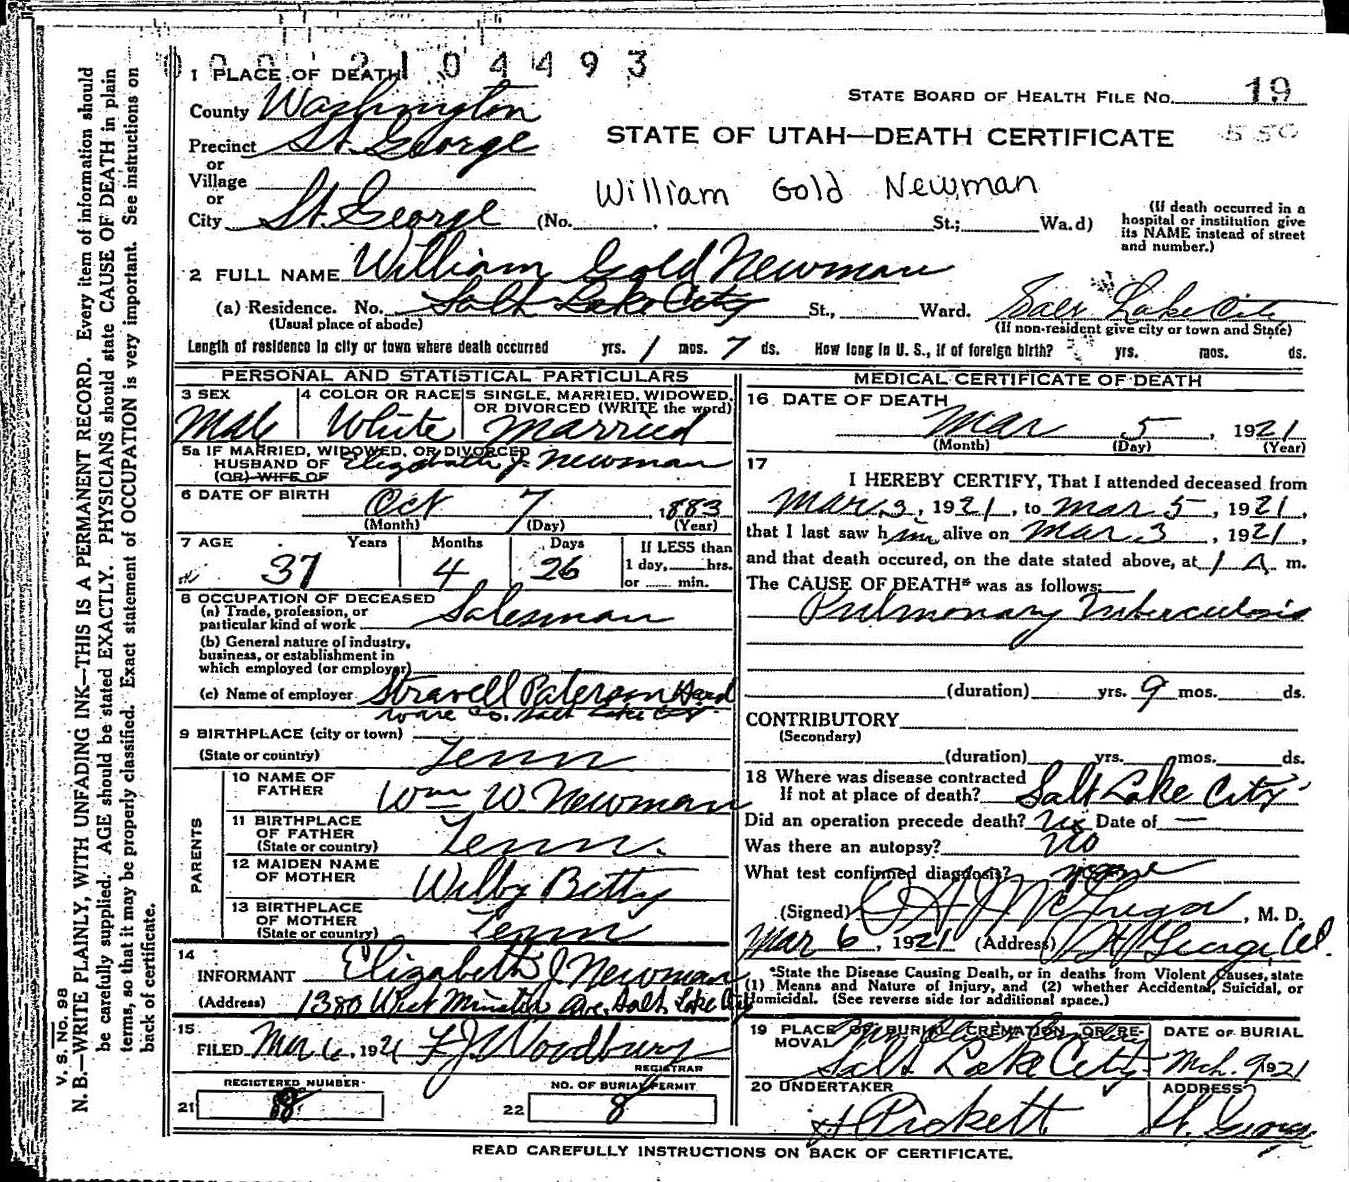 0002104493
1 PLACE OF DEATH
County Washington
STATE BOARD OF HEALTH FILE NO. 19
Precinct St. George
STATE OF UTAH—DEATH CERTIFICATE
550
or
Village
William Gold Newman
or
City St. George (No. St.; Wa.d)
(If death occurred in a hospital or institution give its NAME instead of street and number.)
2 FULL NAME William Gold Newman
(a) Residence. No. Salt Lake City St., Ward. Salt Lake City
(Usual place of abode) (If non-resident give city or town and State)
Length of residence in city or town where death occurred yrs. 1 mos. 7 ds. How long in U. S., if of foreign birth? yrs. mos. ds.
PERSONAL AND STATISTICAL PARTICULARS
3 SEX 4 COLOR OR RACE 5 SINGLE, MARRIED, WIDOWED,
OR DIVORCED (WRITE the word)
Male White Married
5a IF MARRIED, WIDOWED, OR DIVORCED
HUSBAND OF Elizabeth J. Newman
(OR) WIFE OF
6 DATE OF BIRTH Oct 7, 1883
(Month) (Day) (Year)
7 AGE Years Months Days If LESS than
1 day, hrs.
37 4 26 or min.
8 OCCUPATION OF DECEASED
(a) Trade, profession, or
particular kind of work Salesman
(b) General nature of industry,
business, or establishment in
which employed (or employer)
(c) Name of employer Stravell Paterson Hard
ware Co. Salt Lake City
9 BIRTHPLACE (city or town)
(State or country) Tenn
PARENTS
10 NAME OF
FATHER Wm W Newman
11 BIRTHPLACE
OF FATHER
(State or country) Tenn.
12 MAIDEN NAME
OF MOTHER Wilby Betty
13 BIRTHPLACE
OF MOTHER
(State or country) Tenn
14
INFORMANT Elizabeth J Newman
(Address) 1380 West Minster Ave. Salt Lake City
15
FILED Mar 6, 1921 F J Woodbury
REGISTRAR
REGISTERED NUMBER NO. OF BURIAL PERMIT
21 8 22 8
MEDICAL CERTIFICATE OF DEATH
16 DATE OF DEATH
Mar 5, 1921
(Month) (Day) (Year)
17
I HEREBY CERTIFY, That I attended deceased from
Mar 3, 1921, to Mar 5, 1921,
that I last saw him alive on Mar 3, 1921,
and that death occured, on the date stated above, at 1 A m.
The CAUSE OF DEATH* was as follows:
Pulmonary Tuberculosis
(duration) yrs. 9 mos. ds.
CONTRIBUTORY
(Secondary)
(duration) yrs. mos. ds.
18 Where was disease contracted
If not at place of death? Salt Lake City
Did an operation precede death? No Date of —
Was there an autopsy? No
What test confirmed diagnosis?
(Signed) McGregor, M. D.
Mar 6, 1921 (Address) St George
*State the Disease Causing Death, or in deaths from Violent Causes, state
(1) Means and Nature of Injury, and (2) whether Accidental, Suicidal, or
Homicidal. (See reverse side for additional space.)
19 PLACE OF BURIAL, CREMATION, OR RE- DATE OF BURIAL
MOVAL Mt Olivet Cemetery
Salt Lake City Mch. 9 1921
20 UNDERTAKER ADDRESS
Pickett St. George
READ CAREFULLY INSTRUCTIONS ON BACK OF CERTIFICATE.
V. S. No. 98
N. B.—WRITE PLAINLY, WITH UNFADING INK—THIS IS A PERMANENT RECORD. Every item of information should
be carefully supplied. AGE should be stated EXACTLY. PHYSICIANS should state CAUSE OF DEATH in plain
terms, so that it may be properly classified. Exact statement of OCCUPATION is very important. See instructions on
back of certificate.